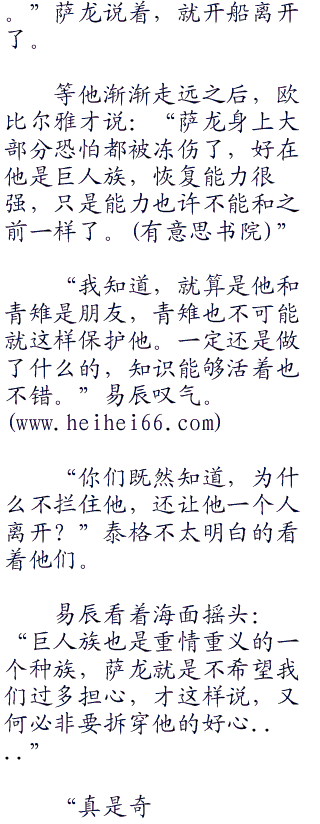 。”萨龙说着，就开船离开
了。
等他渐渐走远之后，欧
比尔雅才说：“萨龙身上大
部分恐怕都被冻伤了，好在
他是巨人族，恢复能力很
强，只是能力也许不能和之
前一样了。(有意思书院)”
“我知道，就算是他和
青雉是朋友，青雉也不可能
就这样保护他。一定还是做
了什么的，知识能够活着也
不错。”易辰叹气。
(www.heihei66.com)
“你们既然知道，为什
么不拦住他，还让他一个人
离开？”泰格不太明白的看
着他们。
易辰看着海面摇头：
“巨人族也是重情重义的一
个种族，萨龙就是不希望我
们过多担心，才这样说，又
何必非要拆穿他的好心..
..”
“真是奇